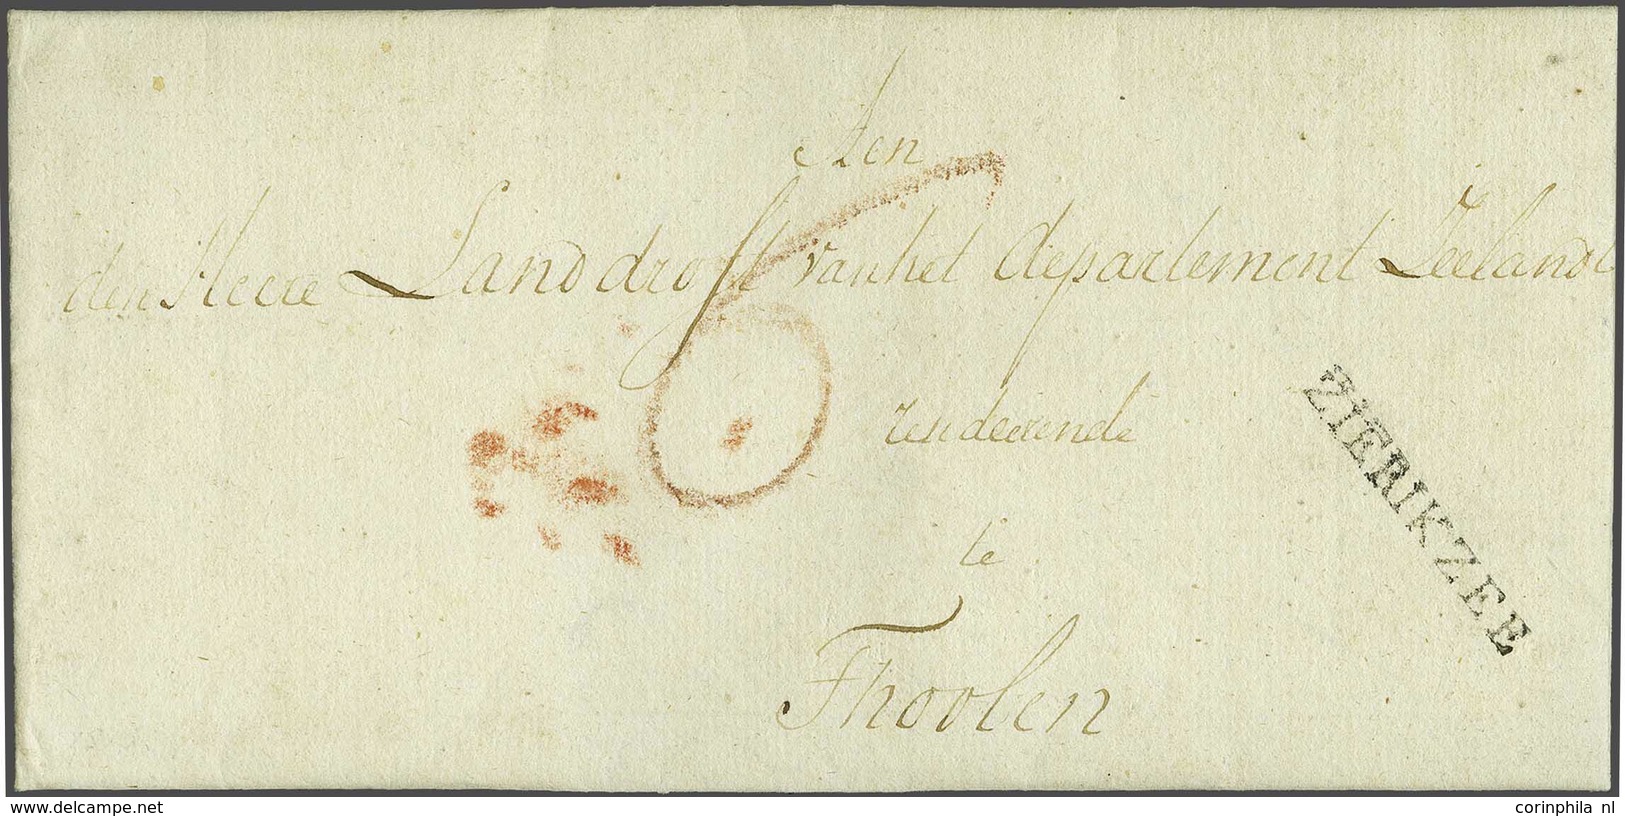 Aen
den Heere Landdrost van het departement Zeeland
resideerende
te
Thoolen
6
ZIERIKZEE
www.delcampe.net
corinphila nl